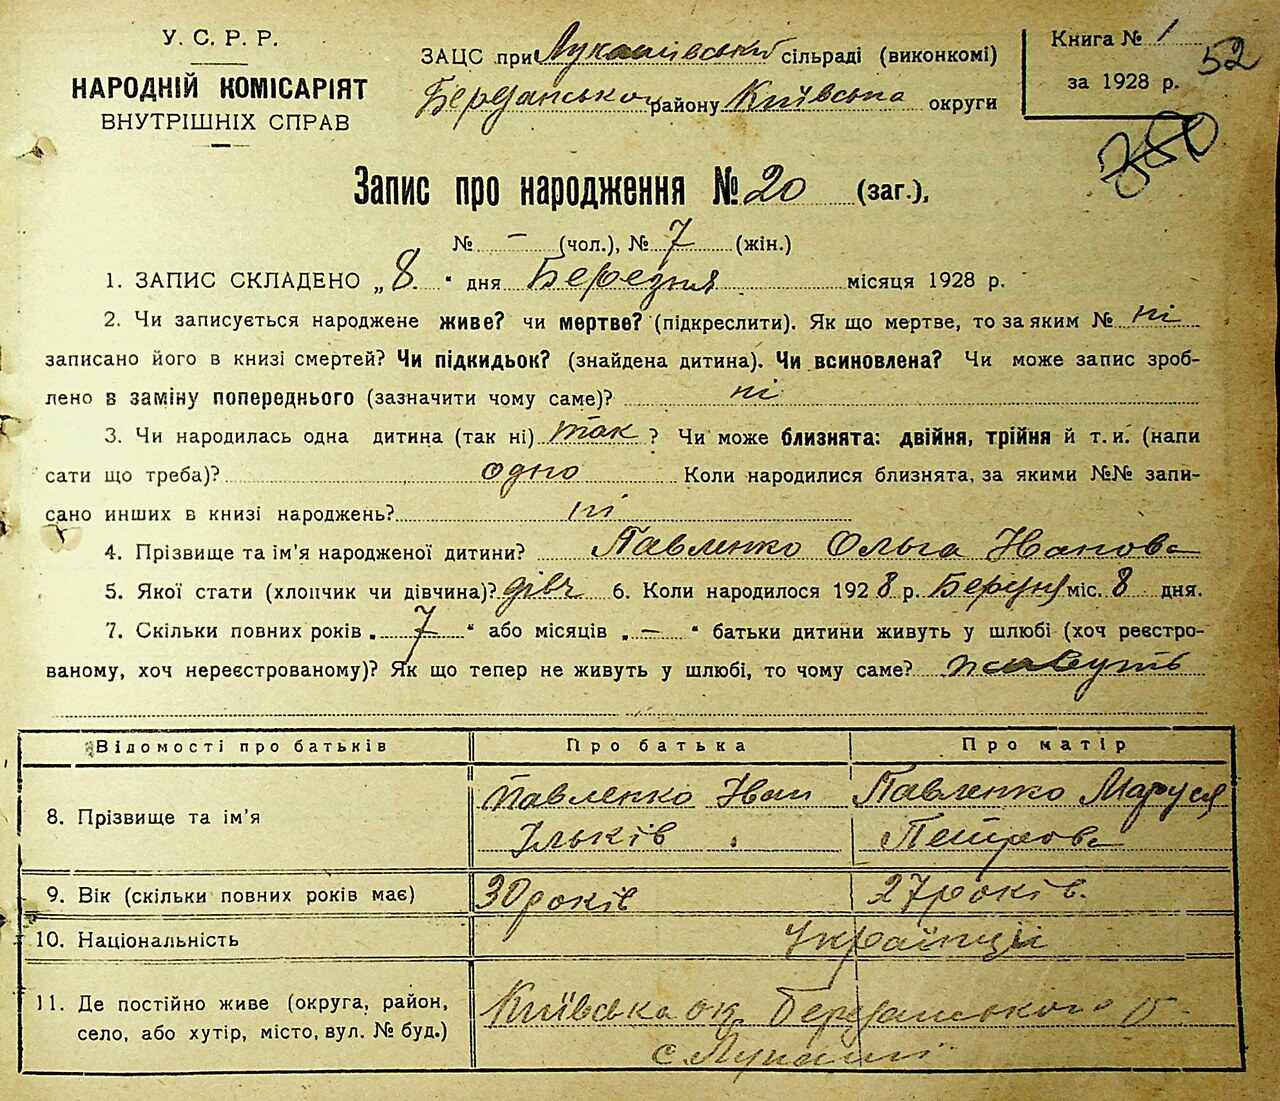 У. С. Р. Р.
НАРОДНІЙ КОМІСАРІЯТ
ВНУТРІШНІХ СПРАВ
ЗАЦС при Лукашівський сільраді (виконкомі)
Берданського району Київська округи
Книга № 1
за 1928 р.
52
380
Запис про народження № 20 (заг.),
№ – (чол.), № 7 (жін.)
1. ЗАПИС СКЛАДЕНО „8“ дня Березня місяця 1928 р.
2. Чи записується народжене живе? чи мертве? (підкреслити). Як що мертве, то за яким № ні
записано його в книзі смертей? Чи підкидьок? (знайдена дитина). Чи всиновлена? Чи може запис зроб-
лено в заміну попереднього (зазначити чому саме)? ні
3. Чи народилась одна дитина (так ні) так ? Чи може близнята: двійня, трійня й т. и. (напи
сати що треба)? одно Коли народилися близнята, за якими №№ запи-
сано инших в книзі народжень? ні
4. Прізвище та ім'я народженої дитини? Павленко Ольга Иванова
5. Якої стати (хлопчик чи дівчина)? дівч 6. Коли народилося 1928 р. Березня міс. 8 дня.
7. Скільки повних років „ 7 “ або місяців „ – “ батьки дитини живуть у шлюбі (хоч реєстро-
ваному, хоч нереєстрованому)? Як що тепер не живуть у шлюбі, то чому саме? живуть
Відомості про батьків Про батька Про матір
8. Прізвище та ім'я
Павленко Іван
Ільків
Павленко Маруся
Петрова
9. Вік (скільки повних років має) 30 років 27 років.
10. Національність Українці
11. Де постійно живе (округа, район,
село, або хутір, місто, вул. № буд.)
Київська ок. Берданського р.
с. Лукаші